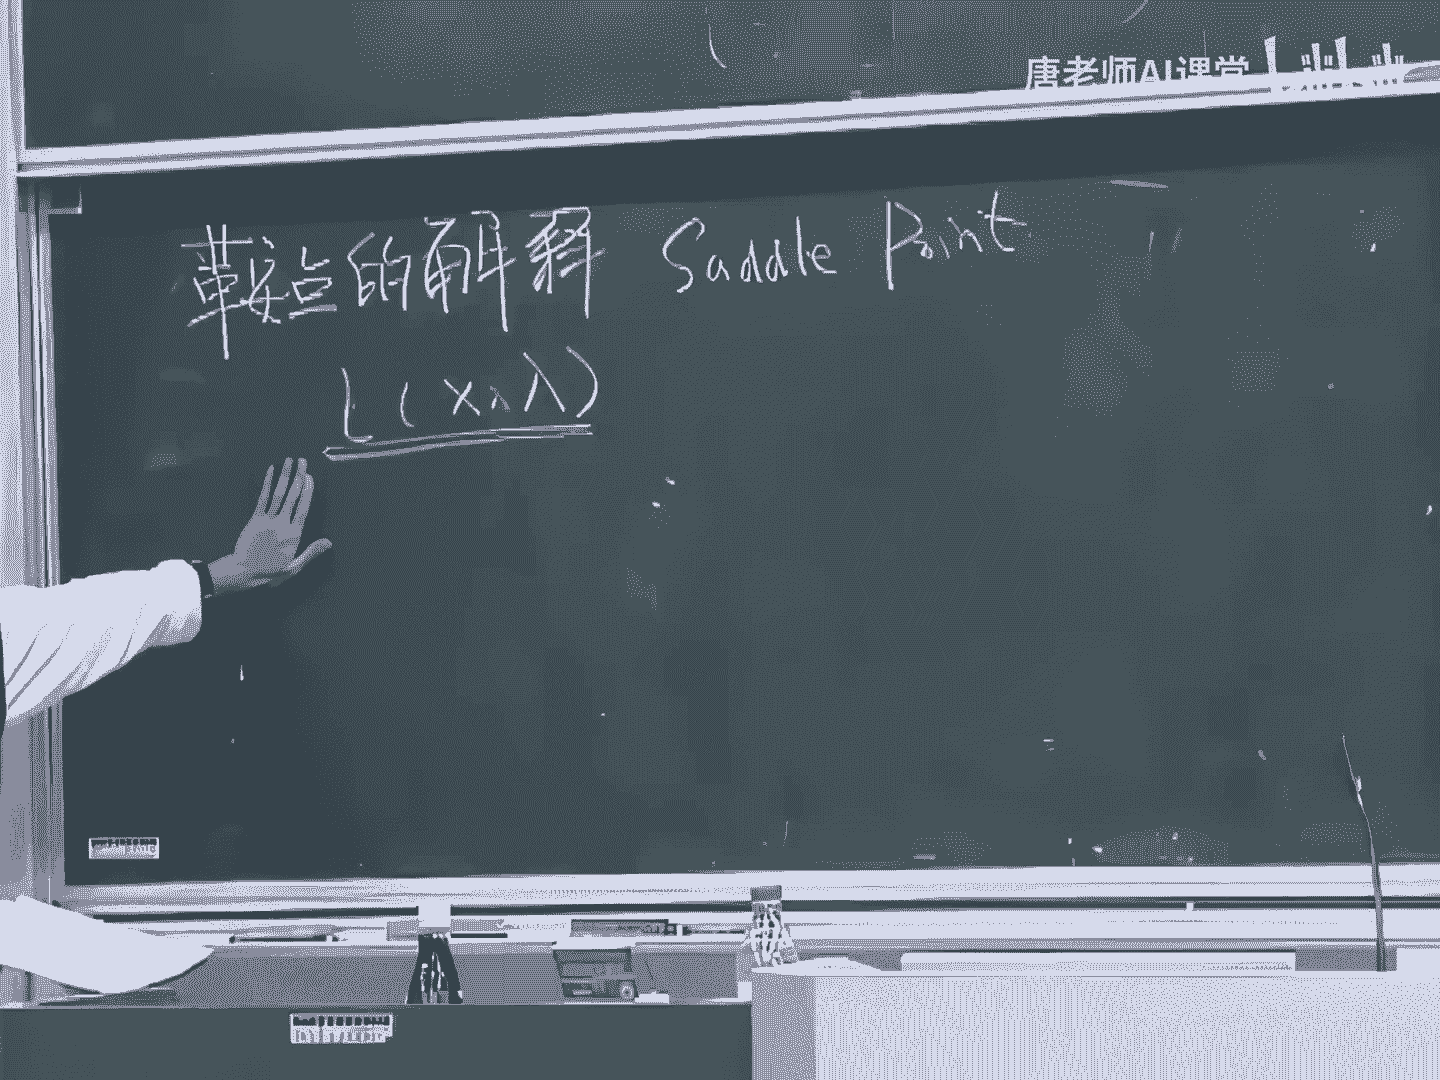 唐老师AI课堂
鞍点的解释 Saddle Point
L(x,λ)